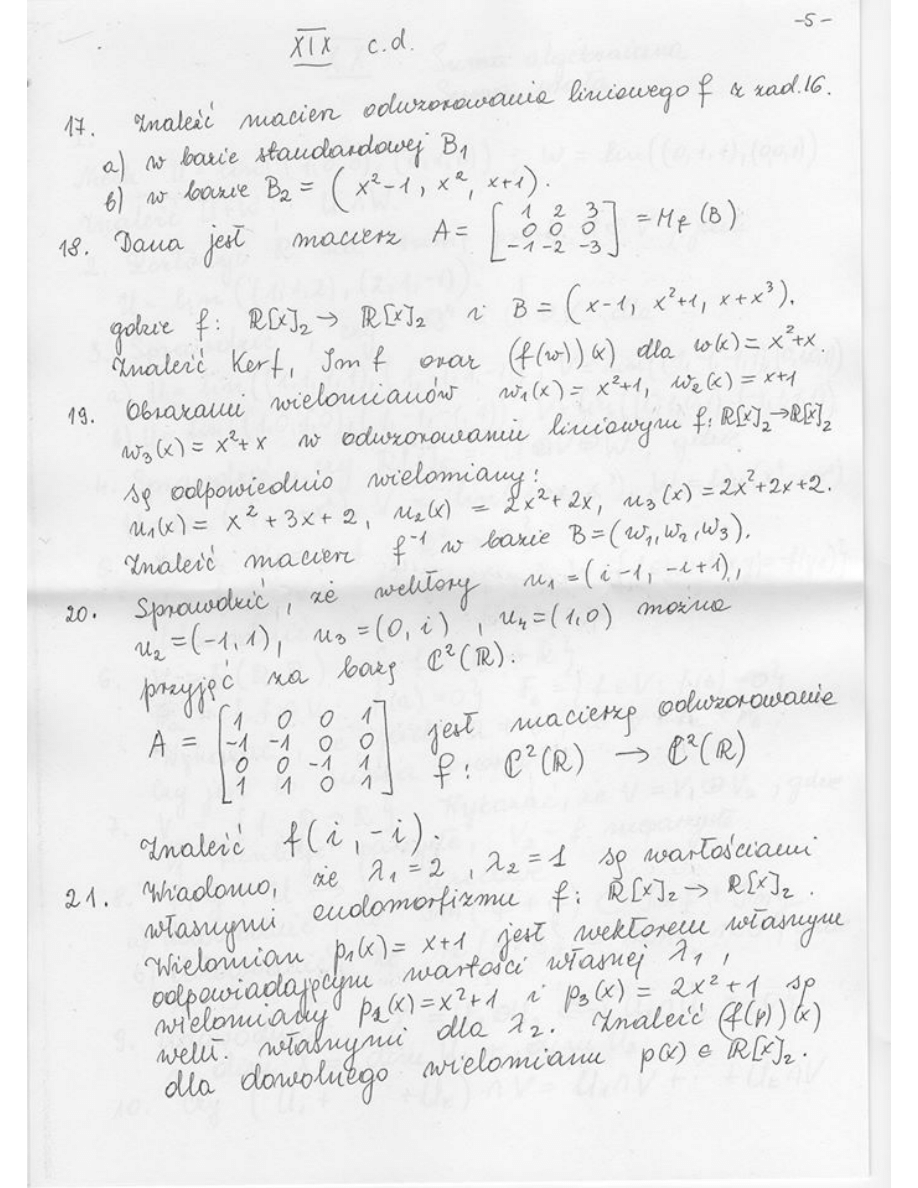 -5-
XIX c.d.
17. Znaleźć macierz odwzorowania liniowego f z zad. 16.
a) w bazie standardowej B₁
b) w bazie B₂ = (x²-1, x², x+1).
18. Dana jest macierz A = [1 2 3; 0 0 0; -1 -2 -3] = M_f (B)
gdzie f: ℝ[x]₂ → ℝ[x]₂ i B = (x-1, x²+1, x+x³).
Znaleźć Ker f, Im f oraz (f(w))(x) dla w(x) = x²+x.
19. Obrazami wielomianów w₁(x) = x²+1, w₂(x) = x+1
w₃(x) = x²+x w odwzorowaniu liniowym f: ℝ[x]₂→ℝ[x]₂
są odpowiednio wielomiany:
u₁(x) = x²+3x+2, u₂(x) = 2x²+2x, u₃(x) = 2x²+2x+2.
Znaleźć macierz f⁻¹ w bazie B=(w₁, w₂, w₃).
20. Sprawdzić, że wektory u₁ = (i-1, -i+1),
u₂ = (-1, 1), u₃ = (0, i), u₄ = (1,0) można
przyjąć za bazę ℂ²(ℝ).
A = [1 0 0 1; -1 -1 0 0; 0 0 -1 1; 1 1 0 1] jest macierzą odwzorowanie
f: ℂ²(ℝ) → ℂ²(ℝ)
Znaleźć f(i, -i).
21. Wiadomo, że λ₁ = 2, λ₂ = 1 są wartościami
własnymi endomorfizmu f: ℝ[x]₂ → ℝ[x]₂.
Wielomian p₁(x) = x+1 jest wektorem własnym
odpowiadającym wartości własnej λ₁,
wielomiany p₂(x) = x²+1 i p₃(x) = 2x²+1 są
wekt. własnymi dla λ₂. Znaleźć (f(p))(x)
dla dowolnego wielomianu p(x) ∈ ℝ[x]₂.